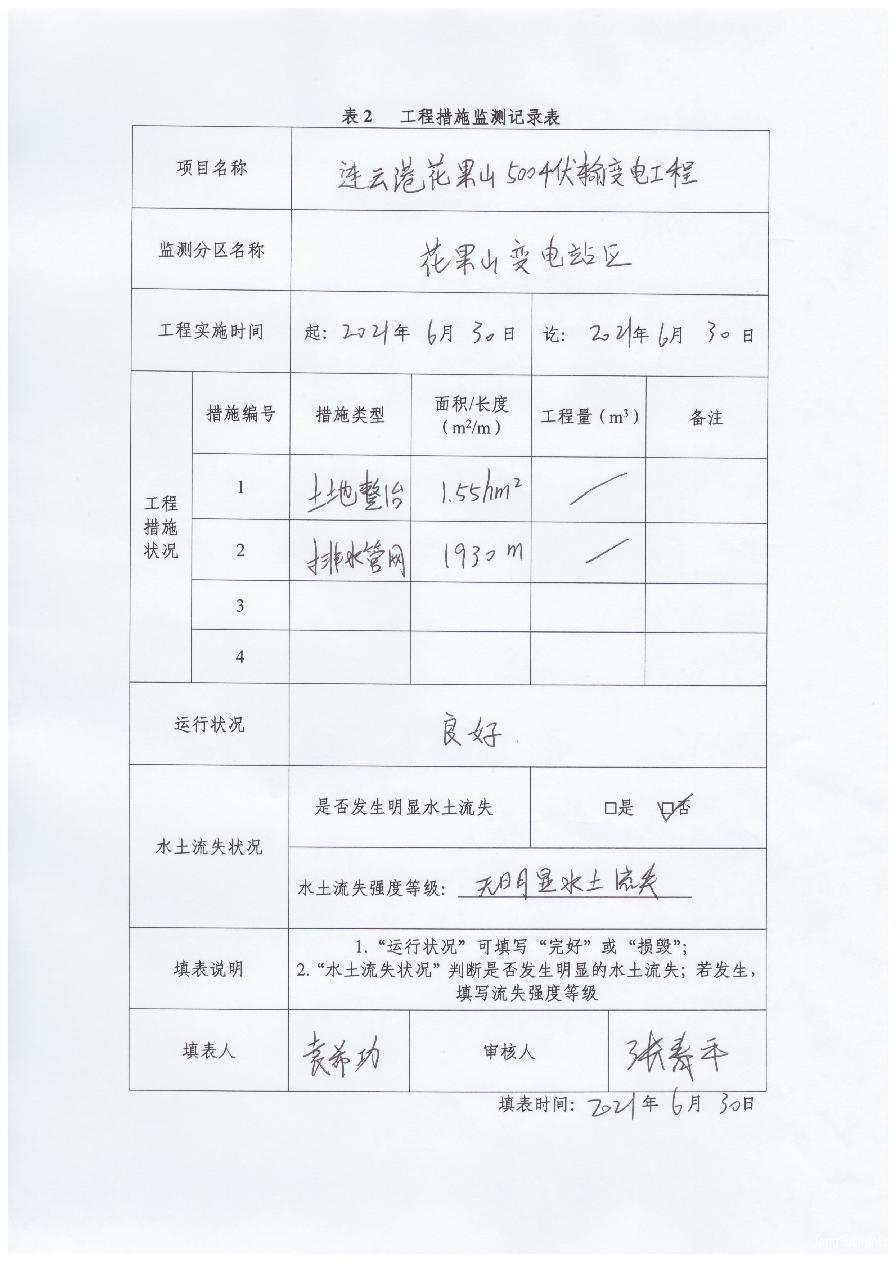 表2 工程措施监测记录表
项目名称 连云港花果山500千伏输变电工程
监测分区名称 花果山变电站区
工程实施时间 起：2021年6月30日 讫：2021年6月30日
工程措施状况
措施编号 措施类型 面积/长度（m²/m） 工程量（m³） 备注
1 土地整治 1.55hm² /
2 排水管网 1930m /
3
4
运行状况 良好.
水土流失状况
是否发生明显水土流失 □是 ☑否
水土流失强度等级：无明显水土流失
填表说明
1.“运行状况”可填写“完好”或“损毁”；
2.“水土流失状况”判断是否发生明显的水土流失；若发生，
填写流失强度等级
填表人 袁希功 审核人 张春平
填表时间：2021年6月30日